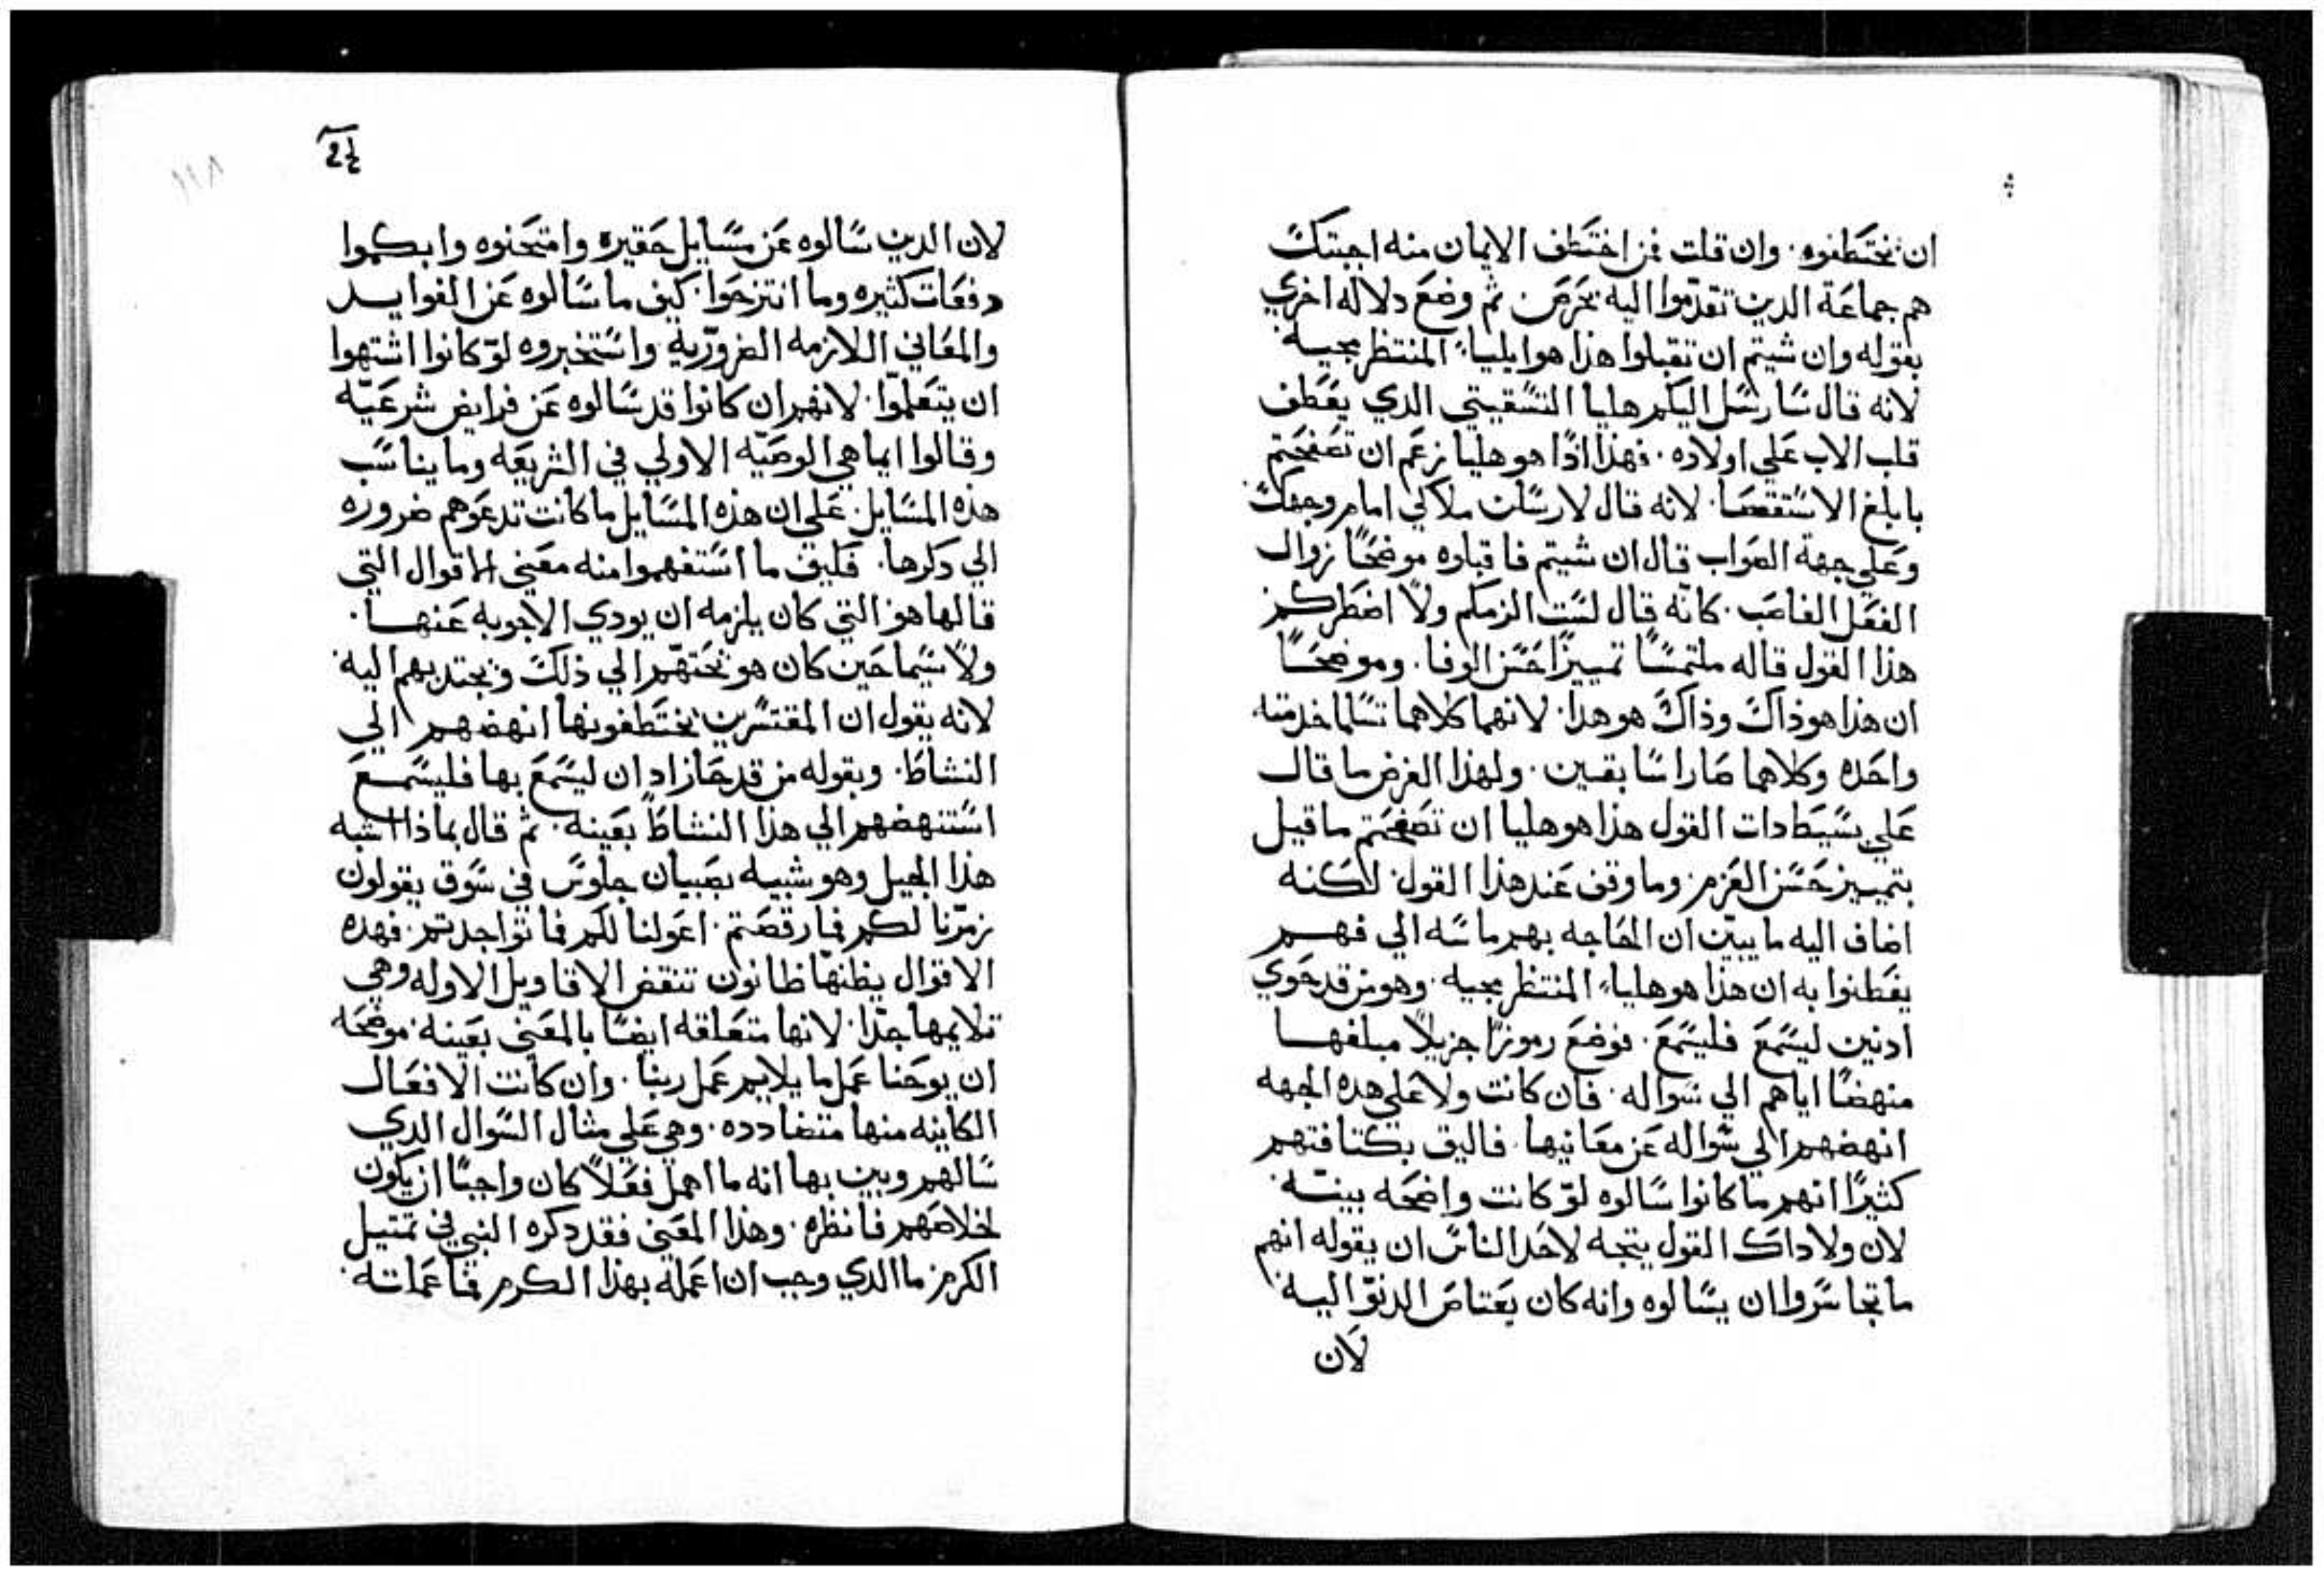 ان يختطفوه. وان قلت فمن اختطف الايمان منه اجبتك
هم جماعة الدين تقدموا اليه بحرص ثم وضع دلاله اخري
بقوله وان شيتم ان تقبلوا هذا هو ايلياء المنتظر مجيه
لانه قال سارسل اليكم هليا التسقيتي الدي يعطف
قلب الاب علي اولاده. فهذا اذا هو هليا زعم ان تصفحتم
بابلغ الاستقصا. لانه قال لارسلن ملاكي امام وجهك
وعلي جهة الصواب قال ان شيتم فاقبلوه موضحًا زوال
الفعل الغاصب. كانه قال لست الزمكم ولا اضطركم
هذا القول قاله ملتمسًا تمييزًا حسن الوفا. وموضحًا
ان هذا هو ذاك وذاك هو هدا. لانهما كلاهما تسلما خدمة
واحده وكلاهما صارا سابقين. ولهذا الغرض ما قال
علي بسيطادات القول هذا هو هليا ان تصفحتم ما قيل
بتمييز حسن العزم. وما وقف عند هذا القول لكنه
اضاف اليه ما يبين ان الحاجه بهم ماسه الي فهم
يفطنوا به ان هذا هو هلياء المنتظر مجيه. وهو من قد حوي
ادنين ليسمع فليسمع. فوضع رموزًا جزيلاً مبلغها
منهضًا اياهم الي سواله. فان كانت ولا علي هده الجهه
انهضهم الي سواله عن معانيها. فاليق بكتافتهم
كثيرًا انهم ما كانوا سالوه لو كانت واضحه بينه.
لان ولا داك القول يتجه لاحد الناس ان يقوله انهم
ما تجاسروا ان يسالوه وانه كان يعتاص الدنو اليه
لان
لان الدين سالوه عن مسايل حقيره وامتحنوه وابكموا
دفعات كثيره وما انتزحوا. كيف ما سالوه عن الفوايد
والمعاني اللازمه الضرورية واستخبروه لو كانوا اشتهوا
ان يتعلموا. لانهم ان كانوا قد سالوه عن فرايض شرعيه
وقالوا ايما هي الوصيه الاولي في الشريعه وما يناسب
هذه المسايل. علي ان هذه المسايل ما كانت تدعوهم ضروره
الي دكرها. فكيف ما استفهموا منه معني الاقوال التي
قالها هو التي كان يلزمه ان يودي الاجوبه عنها.
ولا سيما حين كان هو يحثهم الي ذلك ويجتدبهم اليه
لانه يقول ان المقتسرين يختطفونها انهضهم الي
النشاط. وبقوله من قد حاز ادان ليسمع بها فليسمع
استنهضهم الي هذا النشاط بعينه. ثم قال بماذا اشبه
هذا الجيل وهو شبيه بصبيان جلوس في سوق يقولون
زمرنا لكم فما رقصتم. اعولنا لكم فما تواجدتم. فهده
الاقوال يظنها ظانون تنقض الاقاويل الاوله وهي
تلايمها جدًا. لانها متعلقه ايضًا بالمعني بعينه. موضحه
ان يوحنا عمل ما يلايم عمل ربنا. وان كانت الافعال
الكاينه منها متضادده. وهي علي مثال السوال الدي
سالهم وبين بها انه ما اهمل فعلاً كان واجبًا ان يكون
لخلاصهم فانظره. وهذا المعني فقد دكره النبي في تمتيل
الكرم. ما الدي وجب ان اعمله بهذا الكرم فما عملته